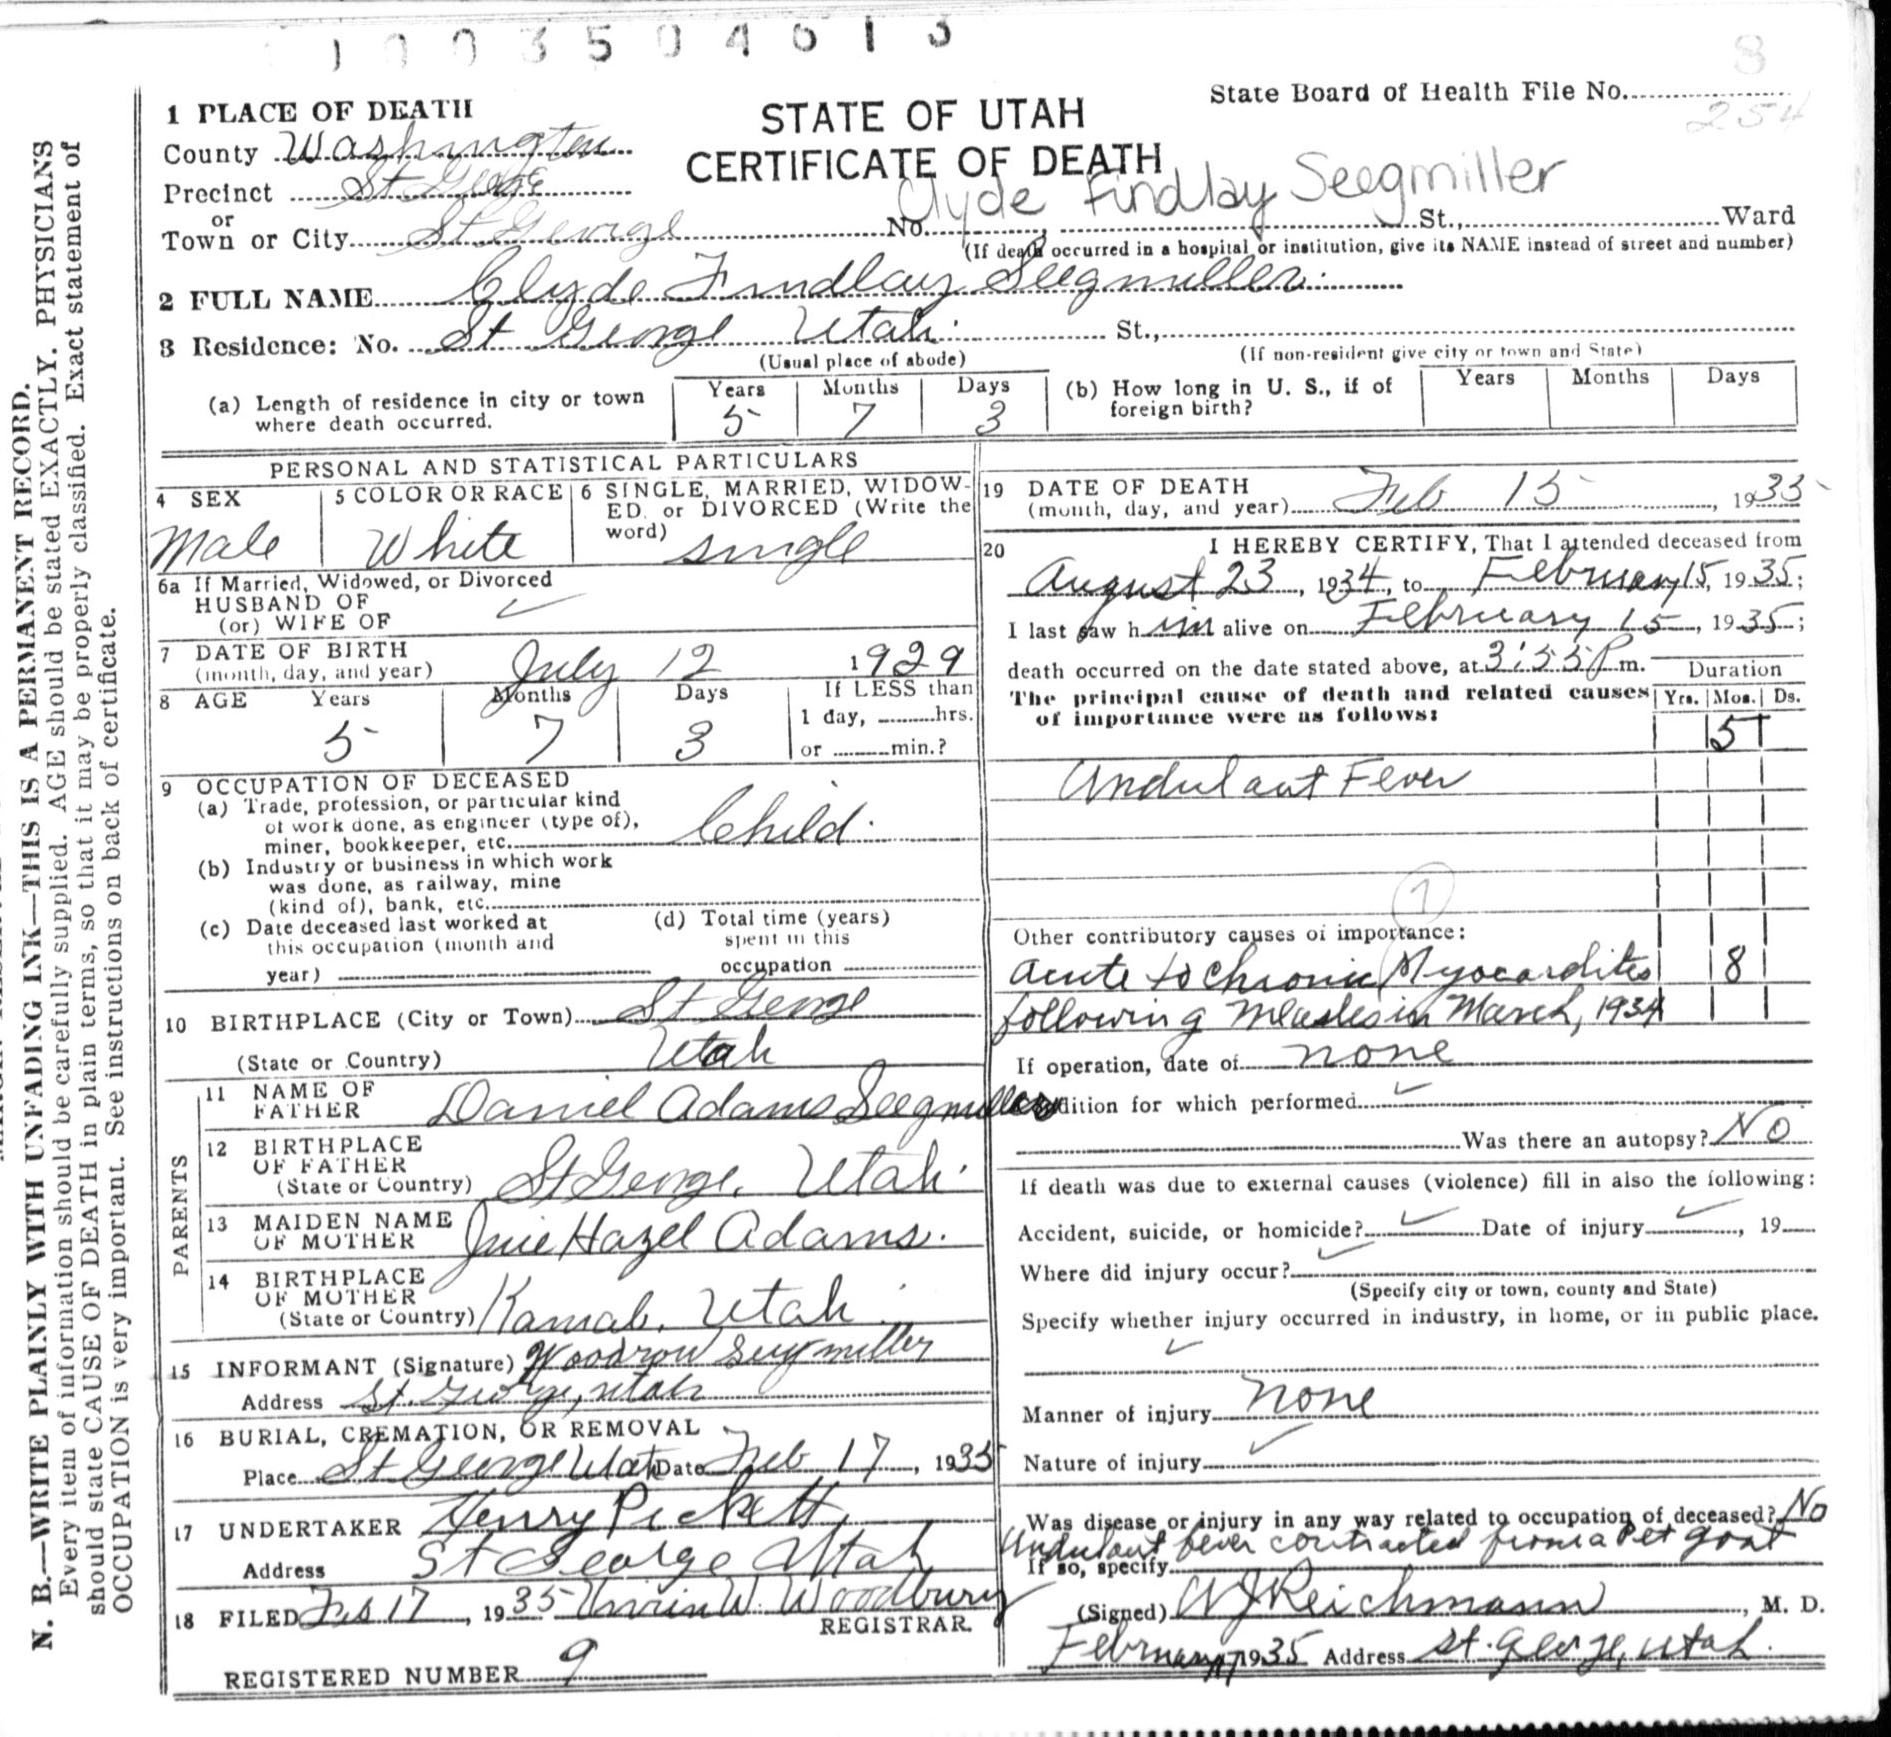 1003504613
8
State Board of Health File No.
254
STATE OF UTAH
CERTIFICATE OF DEATH
Clyde Findlay Seegmiller
1 PLACE OF DEATH
County Washington
Precinct St George
or
Town or City St George No. St., Ward
(If death occurred in a hospital or institution, give its NAME instead of street and number)
2 FULL NAME Clyde Findlay Seegmiller
3 Residence: No. St George Utah St.,
(Usual place of abode) (If non-resident give city or town and State)
(a) Length of residence in city or town where death occurred. Years 5 Months 7 Days 3
(b) How long in U. S., if of foreign birth? Years Months Days
PERSONAL AND STATISTICAL PARTICULARS
4 SEX Male
5 COLOR OR RACE White
6 SINGLE, MARRIED, WIDOWED, or DIVORCED (Write the word) single
6a If Married, Widowed, or Divorced
HUSBAND OF
(or) WIFE OF
7 DATE OF BIRTH
(month, day, and year) July 12 1929
8 AGE Years 5 Months 7 Days 3 If LESS than
1 day, hrs.
or min.?
9 OCCUPATION OF DECEASED
(a) Trade, profession, or particular kind
of work done, as engineer (type of),
miner, bookkeeper, etc. Child
(b) Industry or business in which work
was done, as railway, mine
(kind of), bank, etc.
(c) Date deceased last worked at
this occupation (month and
year)
(d) Total time (years)
spent in this
occupation
10 BIRTHPLACE (City or Town) St George
(State or Country) Utah
PARENTS
11 NAME OF FATHER Daniel Adams Seegmiller
12 BIRTHPLACE OF FATHER
(State or Country) St George, Utah
13 MAIDEN NAME OF MOTHER Hazel Adams.
14 BIRTHPLACE OF MOTHER
(State or Country) Kanab, Utah
15 INFORMANT (Signature) Woodrow Seegmiller
Address St. George, Utah
16 BURIAL, CREMATION, OR REMOVAL
Place St George Utah Date Feb 17, 1935
17 UNDERTAKER Henry Pickett
Address St George Utah
18 FILED Feb 17, 1935 W. Woodbury
REGISTRAR.
REGISTERED NUMBER 9
19 DATE OF DEATH
(month, day, and year) Feb 15, 1935
20 I HEREBY CERTIFY, That I attended deceased from
August 23, 1934, to February 15, 1935;
I last saw him alive on February 15, 1935;
death occurred on the date stated above, at 3:55 P m.
Duration
The principal cause of death and related causes of importance were as follows: Yrs. Mos. Ds.
5
Undulant Fever
1
Other contributory causes of importance:
Acute to Chronic Myocardites 8
following Measles in March, 1934
If operation, date of none
Condition for which performed
Was there an autopsy? No
If death was due to external causes (violence) fill in also the following:
Accident, suicide, or homicide? Date of injury , 19
Where did injury occur?
(Specify city or town, county and State)
Specify whether injury occurred in industry, in home, or in public place.
Manner of injury none
Nature of injury
Was disease or injury in any way related to occupation of deceased? No
Undulant fever contracted from a Pet goat
If so, specify
(Signed) W J Reichmann, M. D.
February 17 1935 Address St. George, Utah.
N. B.—WRITE PLAINLY WITH UNFADING INK—THIS IS A PERMANENT RECORD.
Every item of information should be carefully supplied. AGE should be stated EXACTLY. PHYSICIANS
should state CAUSE OF DEATH in plain terms, so that it may be properly classified. Exact statement of
OCCUPATION is very important. See instructions on back of certificate.